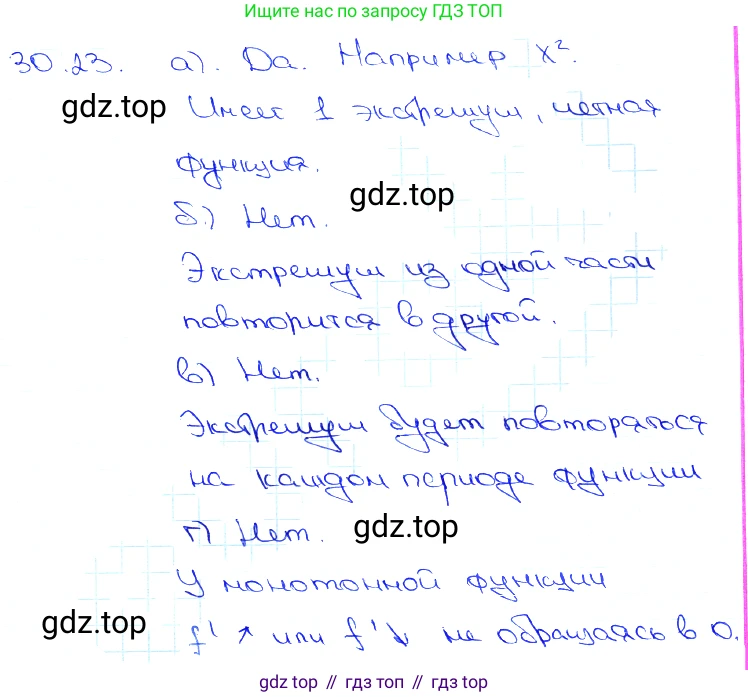 Ищите нас по запросу ГДЗ ТОП
30.23. а). Да. Например x².
gdz.top
Имеет 1 экстремум, четная
функция.
gdz.top
б.) Нет.
Экстремум из одной части
повторится в другой.
в) Нет.
Экстремум будет повторяться
на каждом периоде функции
г) Нет.
gdz.top
У монотонной функции
gdz.top
f' ↗ или f' ↘ не обращаясь в 0.
gdz.top // гдз топ // gdz top // гдз.топ